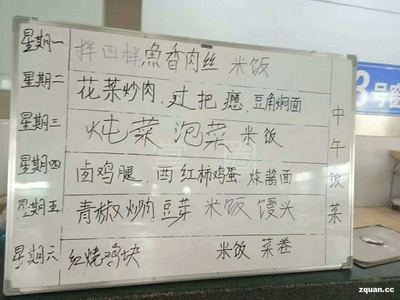 星期一 拌四样 魚香肉丝 米饭
星期二 花菜炒肉、过把瘾、豆角焖面
星期三 炖菜 泡菜 米饭
星期四 卤鸡腿、西红柿鸡蛋 炸酱面
星期五 青椒炒肉 豆芽 米饭 馒头
星期六 红烧鸡块 米饭 菜卷
中午饭菜
3号窗
zquan.cc